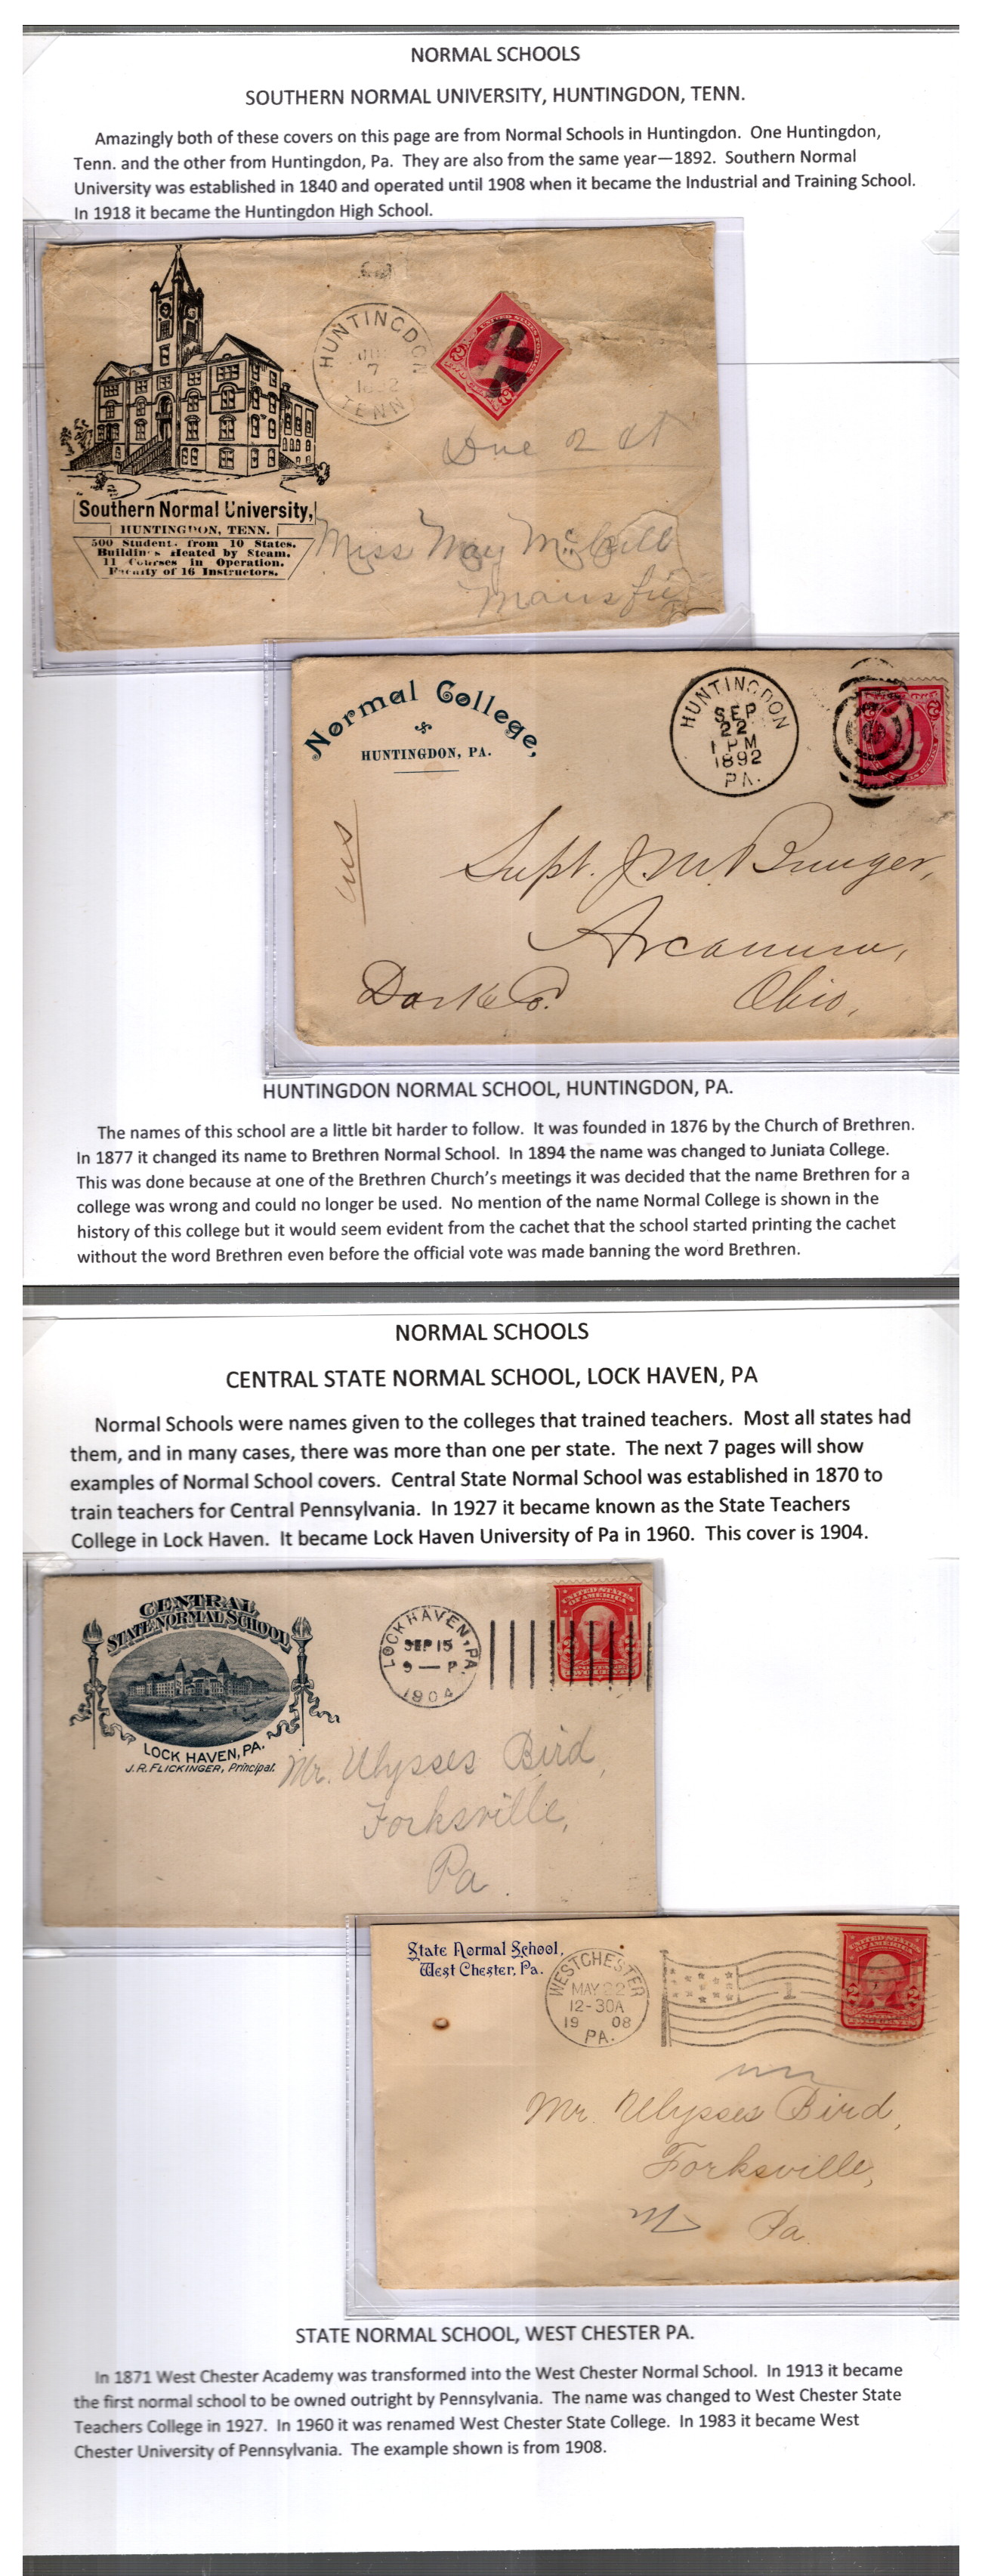 NORMAL SCHOOLS
SOUTHERN NORMAL UNIVERSITY, HUNTINGDON, TENN.
Amazingly both of these covers on this page are from Normal Schools in Huntingdon. One Huntingdon,
Tenn. and the other from Huntingdon, Pa. They are also from the same year—1892. Southern Normal
University was established in 1840 and operated until 1908 when it became the Industrial and Training School.
In 1918 it became the Huntingdon High School.
HUNTINGDON
7
TENN
Due 2 ct
Southern Normal University,
HUNTINGDON, TENN.
500 Student. from 10 States.
Buildin s Heated by Steam.
11 Courses in Operation.
Faculty of 16 Instructors.
Miss May
Normal College,
HUNTINGDON, PA.
HUNTINGDON
SEP
22
1 PM
1892
PA.
Supt. J. M.
Arcanum,
Darke Co. Ohio,
HUNTINGDON NORMAL SCHOOL, HUNTINGDON, PA.
The names of this school are a little bit harder to follow. It was founded in 1876 by the Church of Brethren.
In 1877 it changed its name to Brethren Normal School. In 1894 the name was changed to Juniata College.
This was done because at one of the Brethren Church's meetings it was decided that the name Brethren for a
college was wrong and could no longer be used. No mention of the name Normal College is shown in the
history of this college but it would seem evident from the cachet that the school started printing the cachet
without the word Brethren even before the official vote was made banning the word Brethren.
NORMAL SCHOOLS
CENTRAL STATE NORMAL SCHOOL, LOCK HAVEN, PA
Normal Schools were names given to the colleges that trained teachers. Most all states had
them, and in many cases, there was more than one per state. The next 7 pages will show
examples of Normal School covers. Central State Normal School was established in 1870 to
train teachers for Central Pennsylvania. In 1927 it became known as the State Teachers
College in Lock Haven. It became Lock Haven University of Pa in 1960. This cover is 1904.
CENTRAL
STATE NORMAL SCHOOL
LOCK HAVEN, PA.
J. R. FLICKINGER, Principal.
LOCK HAVEN, PA.
SEP 15
9 — P.
1904
UNITED STATES
OF AMERICA
Mr. Ulysses Bird,
Forksville,
Pa.
State Normal School,
West Chester, Pa.
WESTCHESTER
MAY 22
12-30A
19 08
PA.
1
UNITED STATES
OF AMERICA
Mr. Ulysses Bird,
Forksville,
Pa
STATE NORMAL SCHOOL, WEST CHESTER PA.
In 1871 West Chester Academy was transformed into the West Chester Normal School. In 1913 it became
the first normal school to be owned outright by Pennsylvania. The name was changed to West Chester State
Teachers College in 1927. In 1960 it was renamed West Chester State College. In 1983 it became West
Chester University of Pennsylvania. The example shown is from 1908.